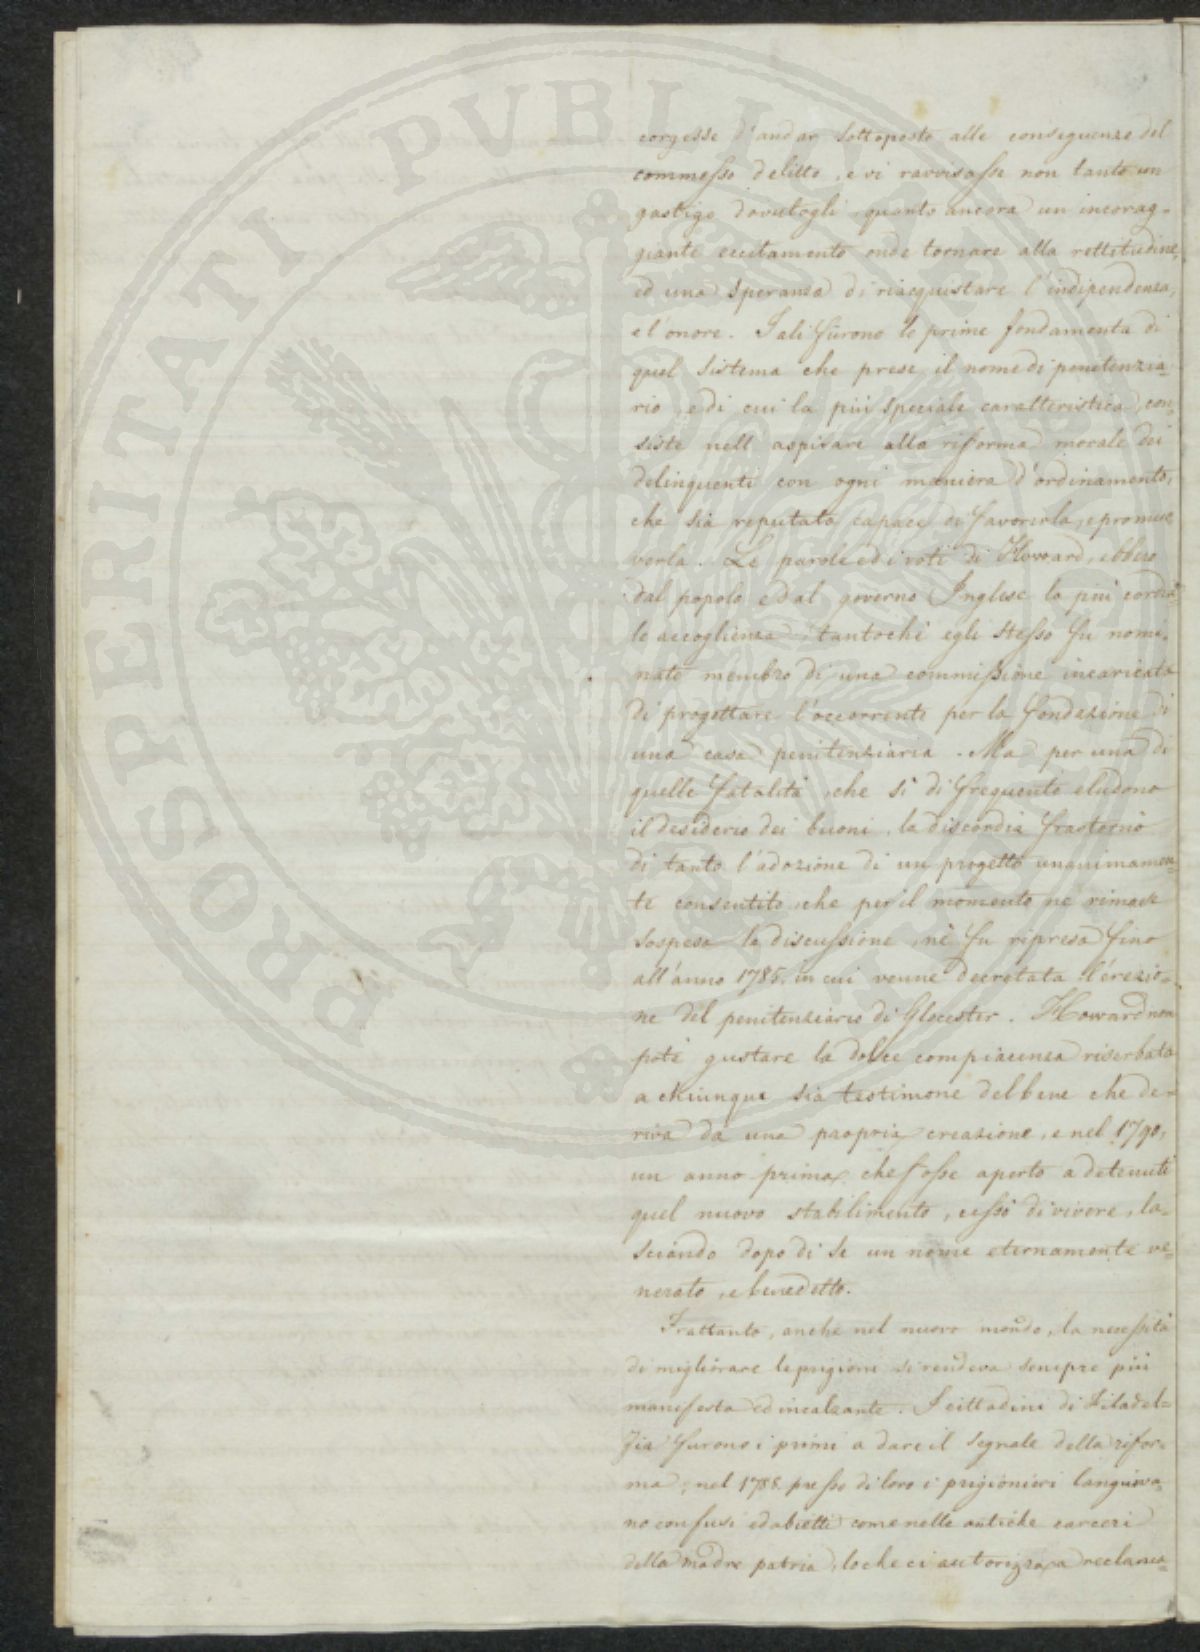 PROSPERITATI PUBLICAE
corgesse d'andar sottoposto alle conseguenze del
commesso delitto, e vi ravvisasse non tanto un
gastigo dovutogli, quanto ancora un incorag-
giante eccitamento onde tornare alla rettitudine,
ed una speranza di riacquistare l'indipendenza,
e l'onore. Tali furono le prime fondamenta di
quel sistema che prese il nome di penitenzia-
rio, e di cui la più speciale caratteristica, con-
siste nell'aspirare alla riforma morale dei
delinquenti con ogni maniera d'ordinamento,
che sia reputato capace di favorirla, e promuo-
verla. Le parole ed i voti di Howard, ebbero
dal popolo e dal governo Inglese la più cordia-
le accoglienza, tantochè egli stesso fu nomi-
nato membro di una commissione incaricata
di progettare l'occorrente per la fondazione di
una casa penitenziaria. Ma per una di
quelle fatalità, che sì di frequente eludono
il desiderio dei buoni, la discordia frastornò
di tanto l'adozione di un progetto unanimamen-
te consentito, che per il momento ne rimase
sospesa la discussione, nè fu ripresa fino
all'anno 1785, in cui venne decretata l'erezio-
ne del penitenziario di Glocester. Howard non
potè gustare la dolce compiacenza riserbata
a chiunque sia testimone del bene che de-
riva da una propria creazione, e nel 1790,
un anno prima che fosse aperto a detenuti
quel nuovo stabilimento, cessò di vivere, la-
sciando dopo di se un nome eternamente ve-
nerato, e benedetto.
Frattanto, anche nel nuovo mondo, la necessità
di migliorare le prigioni si rendeva sempre più
manifesta ed incalzante. I cittadini di Filadel-
fia furono i primi a dare il segnale della rifor-
ma; nel 1788 presso di loro i prigionieri languiva-
no confusi ed abietti come nelle antiche carceri
della madre patria, loche ci autorizza a reclama-